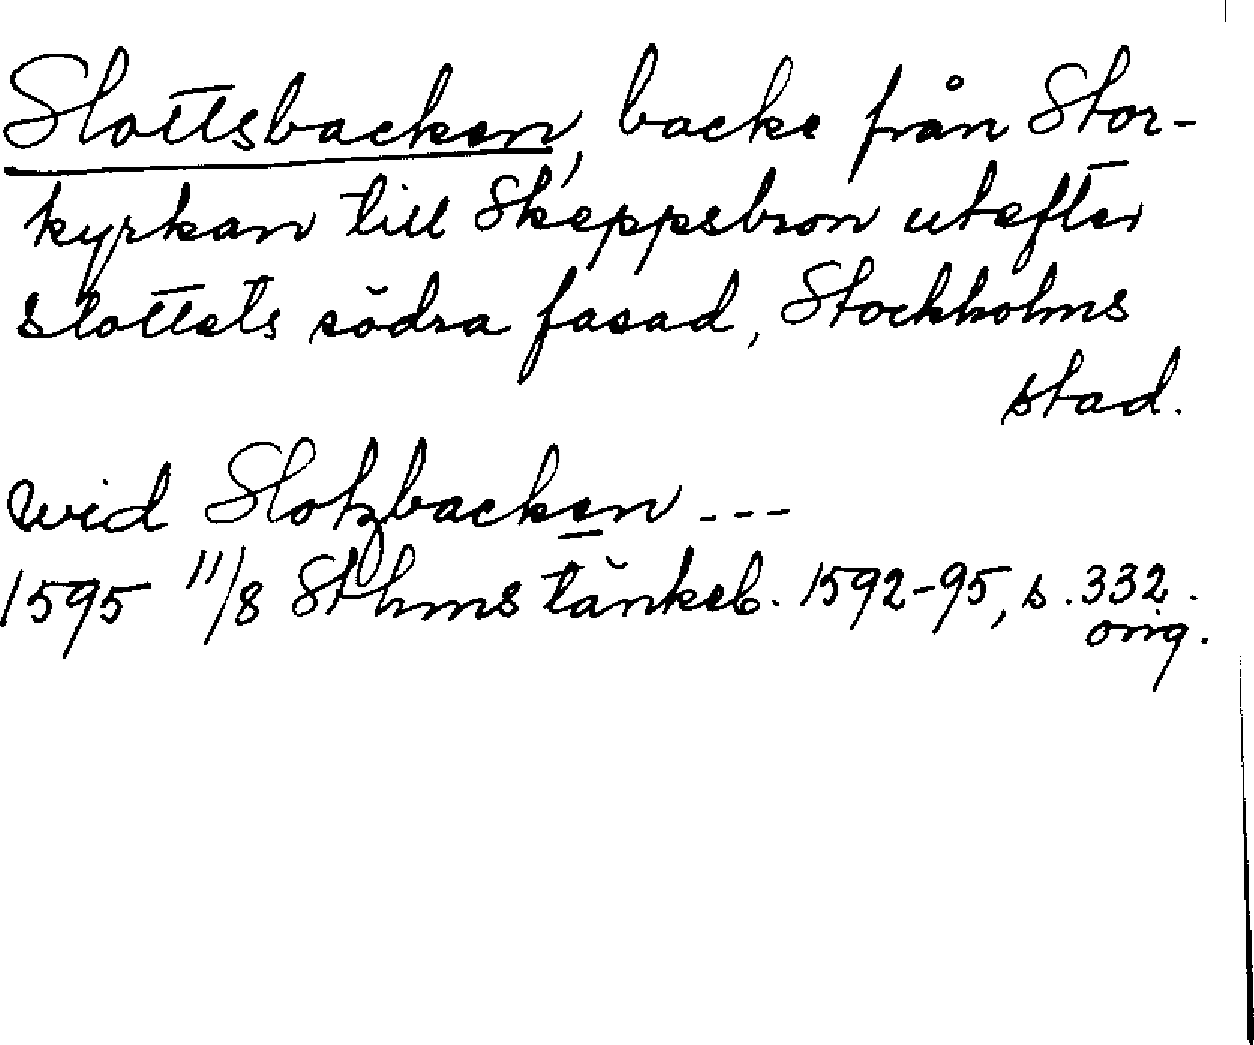 Slottsbacken, backe från Stor-
kyrkan till Skeppsbron utefter
slottets södra fasad, Stockholms
stad.
wid Slotzbacken ---
1595 11/8 Sthms tänkeb. 1592-95, s. 332.
orig.